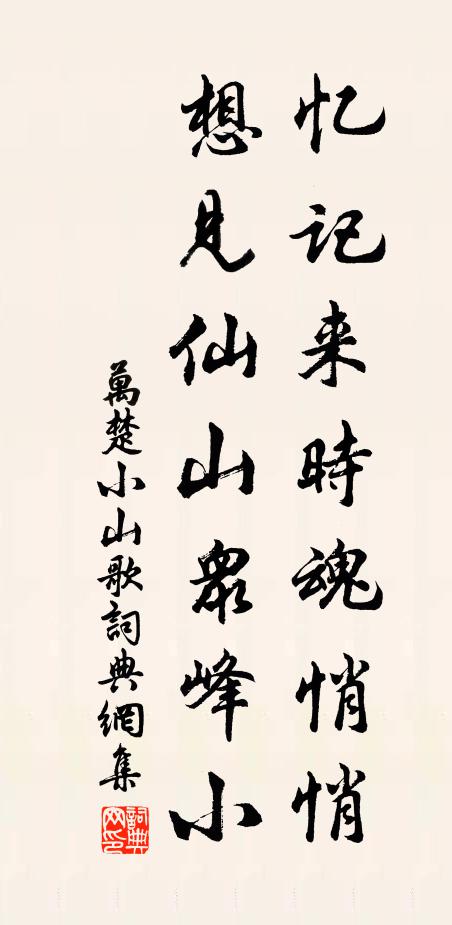 忆记来時魂悄悄
想见仙山衆峰小
萬楚小山歌詞典網集
詞典网印